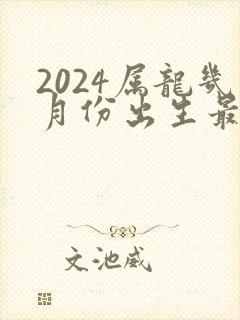 2024属龍幾
月份出生最
文池威